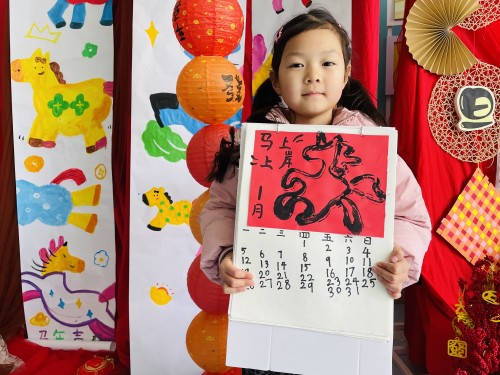 马上
上岸
1月
一 二 三 四 五 六 日
1 2 3 4
5 6 7 8 9 10 11
12 13 14 15 16 17 18
19 20 21 22 23 24 25
26 27 28 29 30 31
马年吉